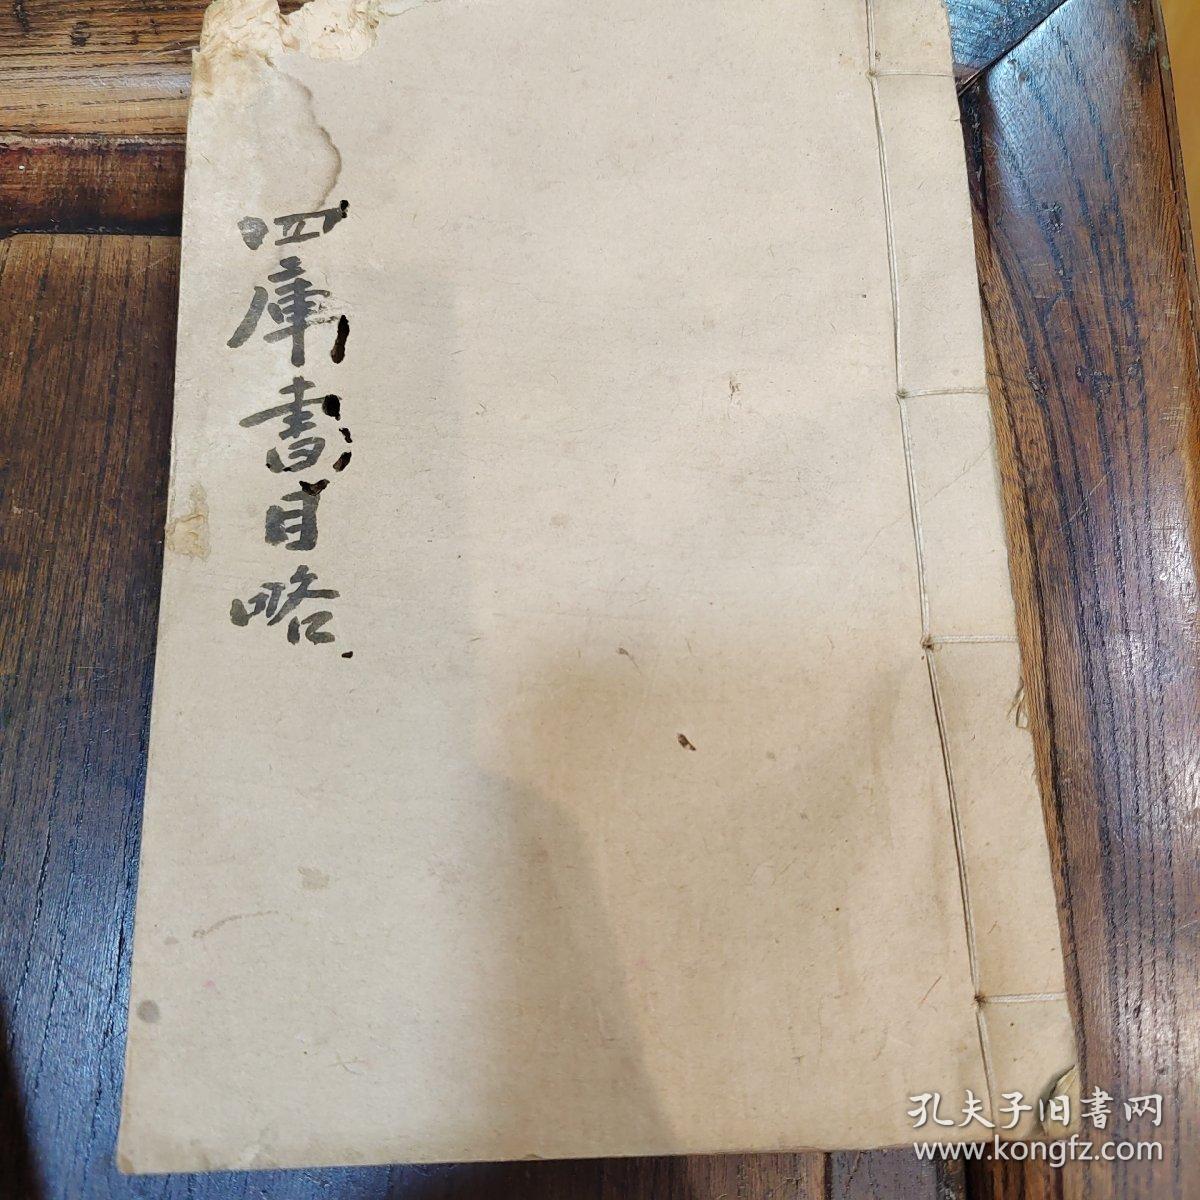 四庫書目略
孔夫子旧書网
www.kongfz.com